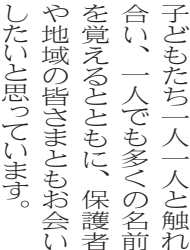 子どもたち一人一人と触れ
合い、一人でも多くの名前
を覚えるとともに、保護者
や地域の皆さまともお会い
したいと思っています。